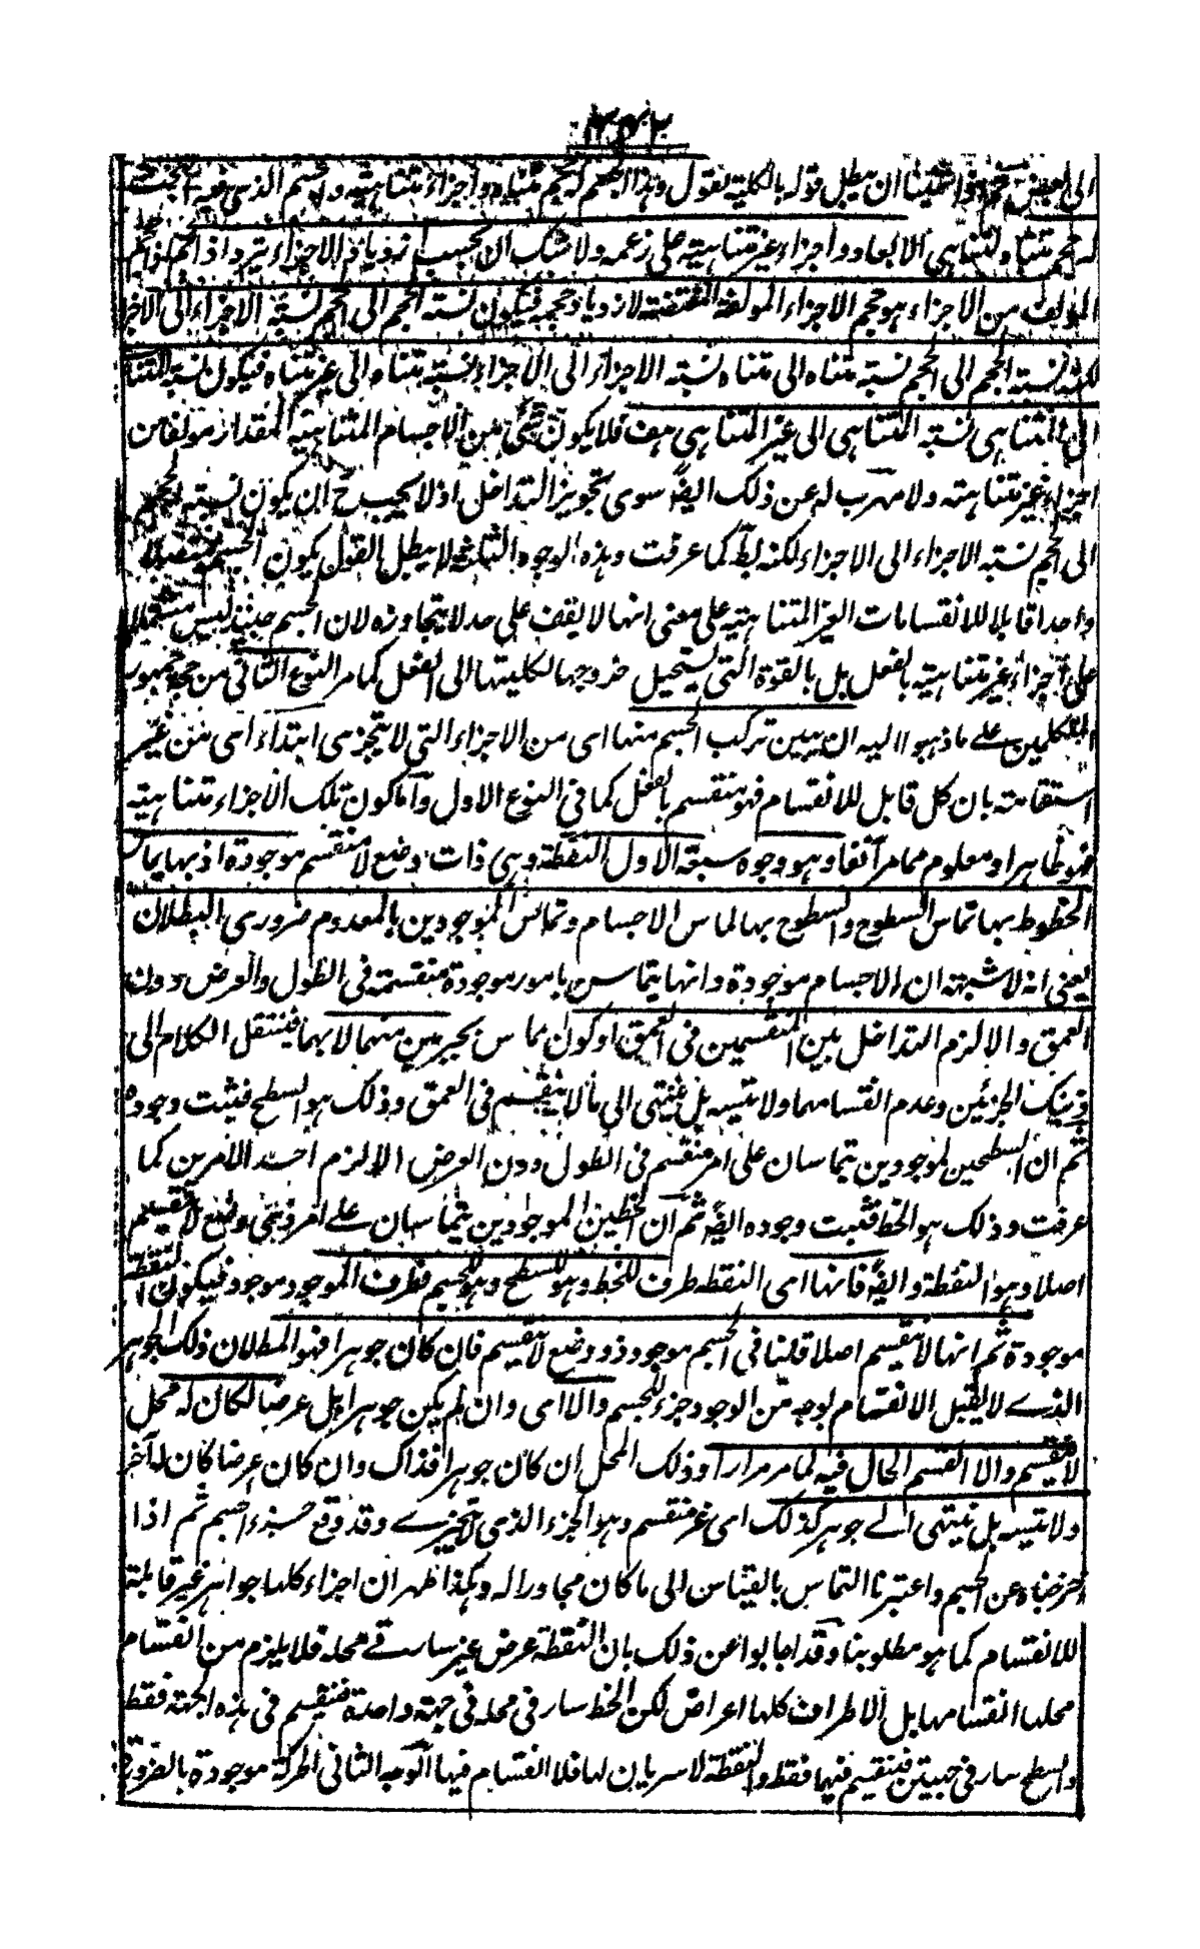 الى البعض حجم واذا شئنا ان يبطل قوله بالكلية نقول وهذا الجسم له حجم متناه واجزاء متناهية والجسم الذي فيه البحث
له حجم متناه لتناهي الابعاد واجزاء غير متناهية على زعمه ولا شك ان بحسب ازدياد الاجزاء يزداد الحجم لان حجم
المؤلف من الاجزاء هو حجم الاجزاء المؤلفة المقتضية لازدياد حجمه فيكون نسبة الحجم الى الحجم نسبة الاجزاء الى الاجزاء
لكنه نسبة الحجم الى الحجم نسبة متناه الى متناه نسبة الاجزاء الى الاجزاء نسبة متناه الى غير متناه فيكون نسبة المتناهي
الى المتناهي نسبة المتناهي الى غير المتناهي هف فلا يكون شيء من الاجسام المتناهية المقدار مؤلفا من
اجزاء غير متناهية ولا مهرب له عن ذلك ايضا سوى تجويز التداخل اذ لا يجب ح ان يكون نسبة الحجم
الى الحجم نسبة الاجزاء الى الاجزاء لكنه بط كما عرفت وهذه الوجوه الثلثة لا يبطل القول بكون الجسم متصلا
واحدا قابلا للانقسامات الغير المتناهية على معنى انها لا يقف على حد لا يتجاوزه لان الجسم حينئذ ليس مشتملا
على اجزاء غير متناهية بالفعل بل بالقوة التي يستحيل خروجها بكليتها الى الفعل كما مر النوع الثاني من حجج جمهور
المتكلمين على ما ذهبوا اليه ان يبين تركب الجسم منها اى من الاجزاء التي لا تتجزى ابتداء اى من غير
استقامته بان كل قابل للانقسام فهو منقسم بالفعل كما في النوع الاول واما كون تلك الاجزاء متناهية
فهو ظاهر او معلوم مما مر آنفا وهو وجوه سبعة الاول النقطة وهى ذات وضع لا منقسم موجودة اذ بها يماس
الخطوط بها تماس السطوح والسطوح بها تماس الاجسام وتماس الموجودين بالمعدوم ضروري البطلان
يعنى انه لا شبهة ان الاجسام موجودة وانها يتماس بامور موجودة منقسمة في الطول والعرض دون
العمق والا لزم التداخل بين المنقسمين في العمق او كون تماس بجزئين منهما لا بهما فينتقل الكلام الى
ذينك الجزئين وعدم انقسامهما ولا يتسه بل ينتهى الى ما لا ينقسم في العمق وذلك هو السطح فثبت وجوده
ثم ان السطحين لموجودين يتماسان على امر منقسم في الطول دون العرض الا لزم احد الامرين كما
عرفت وذلك هو الخط فثبت وجوده ايضا ثم ان الخطين الموجودين يتماسان على امر ذى وضع لا ينقسم
اصلا وهو النقطة وايضا فانها اى النقطة طرف للخط وهو للسطح وهو للجسم فطرف الموجود موجود فيكون النقطة
موجودة ثم انها لا ينقسم اصلا قلنا في الجسم موجود ذو وضع لا ينقسم فان كان جوهرا فهو المطلان ذلك الجوهر
الذى لا يقبل الانقسام لوجه من الوجود جزء للجسم والا اى وان لم يكن جوهرا بل عرضا لكان له محل
لا ينقسم والا انقسم الحال فيه لما مر مرارا وذلك المحل ان كان جوهرا فذاك وان كان عرضا كان له آخر
ولا يتسه بل ينتهى الى جوهر كذلك اى غير منقسم وهو الجزء الذى لا يتجزى وقد وقع جزءا لجسم ثم اذا
اخرضناه عن الجسم واعتبرنا التماس بالقياس الى ما كان مجاورا له وهكذا ظهر ان اجزاء كلها جواهر غير قابلة
للانقسام كما هو مطلوبنا وقد اجابوا عن ذلك بان النقطة عرض غير سارى في محله فلا يلزم من انقسام
محلها انقسامها بل الاطراف كلها اعراض لكن الخط سار في محله في جهة واحدة فينقسم في هذه الجهة فقط
والسطح سار في جهتين فينقسم فيهما فقط والنقطة لا سريان لها فلا انقسام فيها الوجه الثاني الحركة موجودة بالضرورة